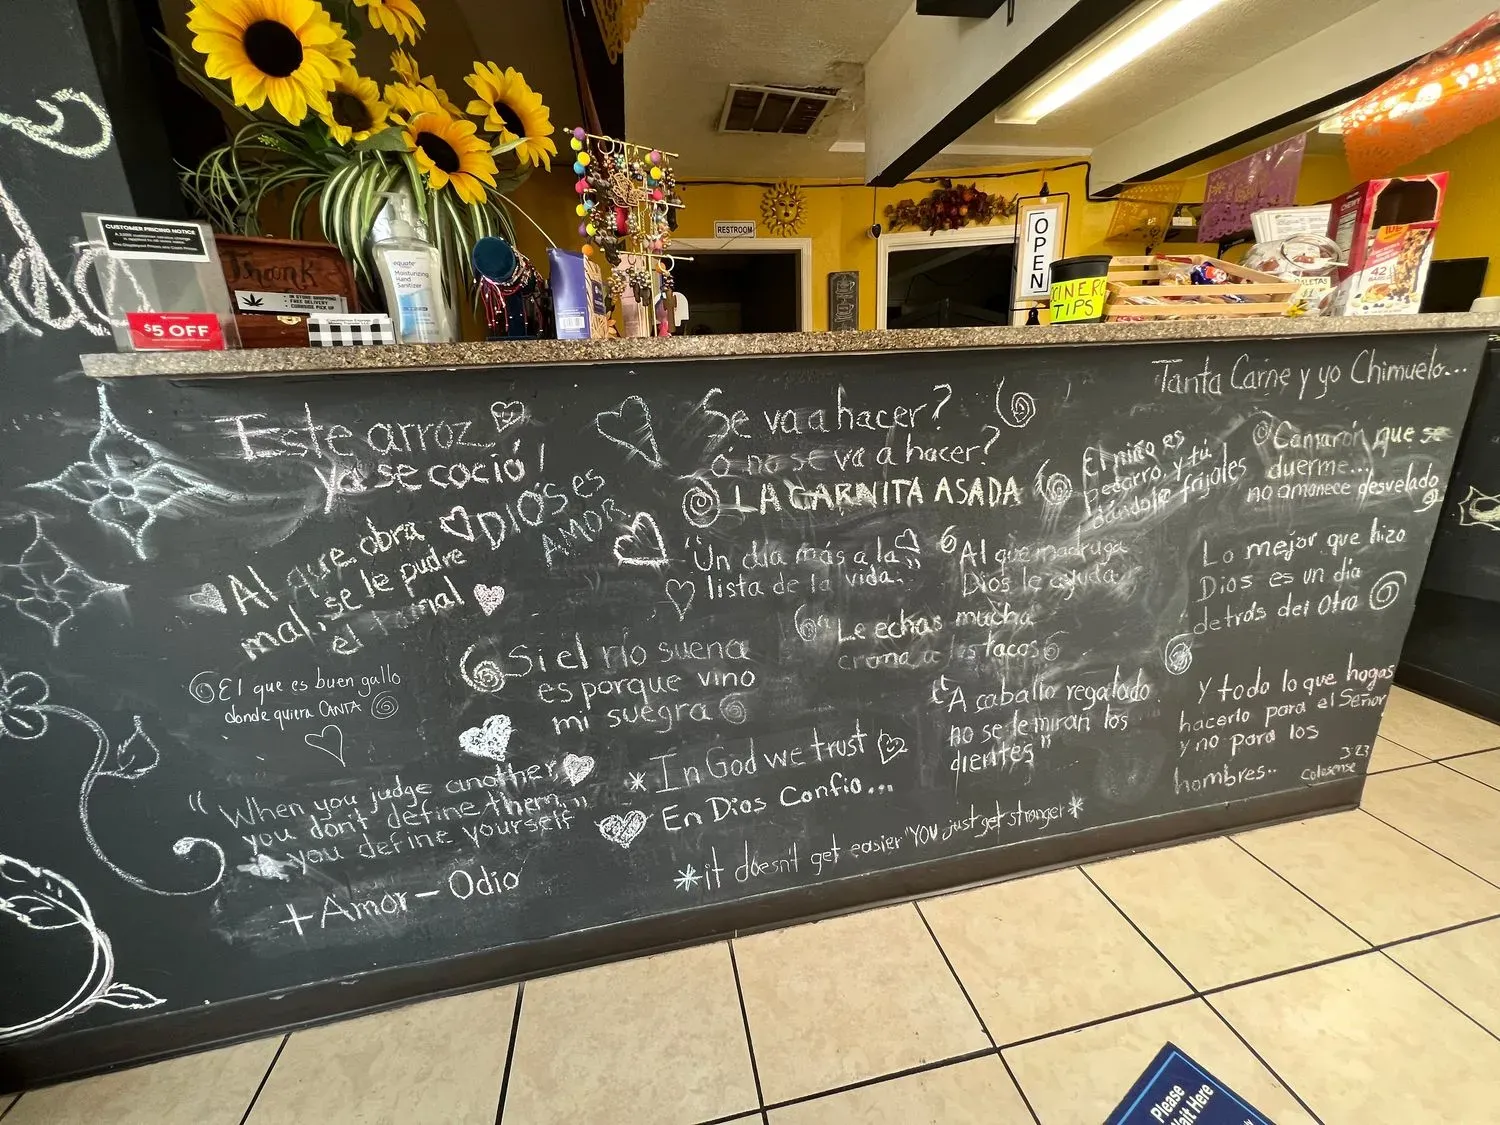 CUSTOMER PRICING NOTICE
$5 OFF
Thank
IN STORE SHOPPING
FREE DELIVERY
CURBSIDE PICK UP
equate
Moisturizing
Hand
Sanitizer
RESTROOM
OPEN
TIPS
PALETAS
42
Este arroz
ya se coció!
Al que obra
mal, se le pudre
el tamal
DIOS es
AMOR
El que es buen gallo
donde quiera CANTA
Si el río suena
es porque vino
mi suegra
"When you judge another
you don't define them...
you define yourself"
+ Amor - Odio
Se va a hacer?
ó no se va a hacer?
LA CARNITA ASADA
"Un dia más a la
lista de la vida."
Al que madruga
Dios le ayuda
Le echas mucha
crema a los tacos
"A caballo regalado
no se le miran los
dientes"
* In God we trust
En Dios Confio...
* it doesn't get easier "YOU just get stronger *
Tanta Carne y yo Chimuelo...
El niño es
pedorro, y tú
dándole frijoles
Camarón que se
duerme...
no amanece desvelado
Lo mejor que hizo
Dios es un dia
detrás del Otro
y todo lo que hagas
hacerlo para el Señor
y no para los
hombres..
3:23
Colosense
Please
Wait Here